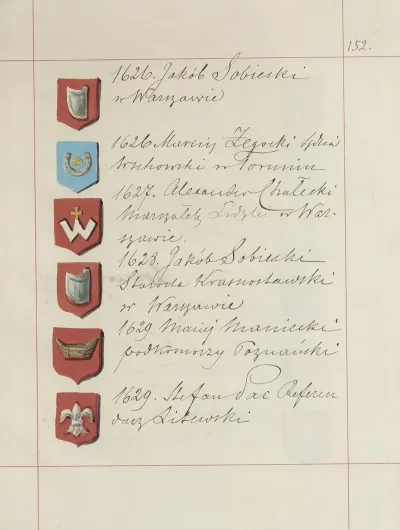 152.
1626. Jakób Sobieski
w Warszawie
1626 Maciej Zegocki Sędzia
wschowski w Toruniu
1627. Alexander Chalecki
Marszałek Lidzki w War-
szawie.
1628. Jakób Sobieski
Starosta Krasnostawski
w Warszawie
1629. Maciej Maniecki
podkomorzy Poznański
1629. Stefan Pac Referen
darz Litewski